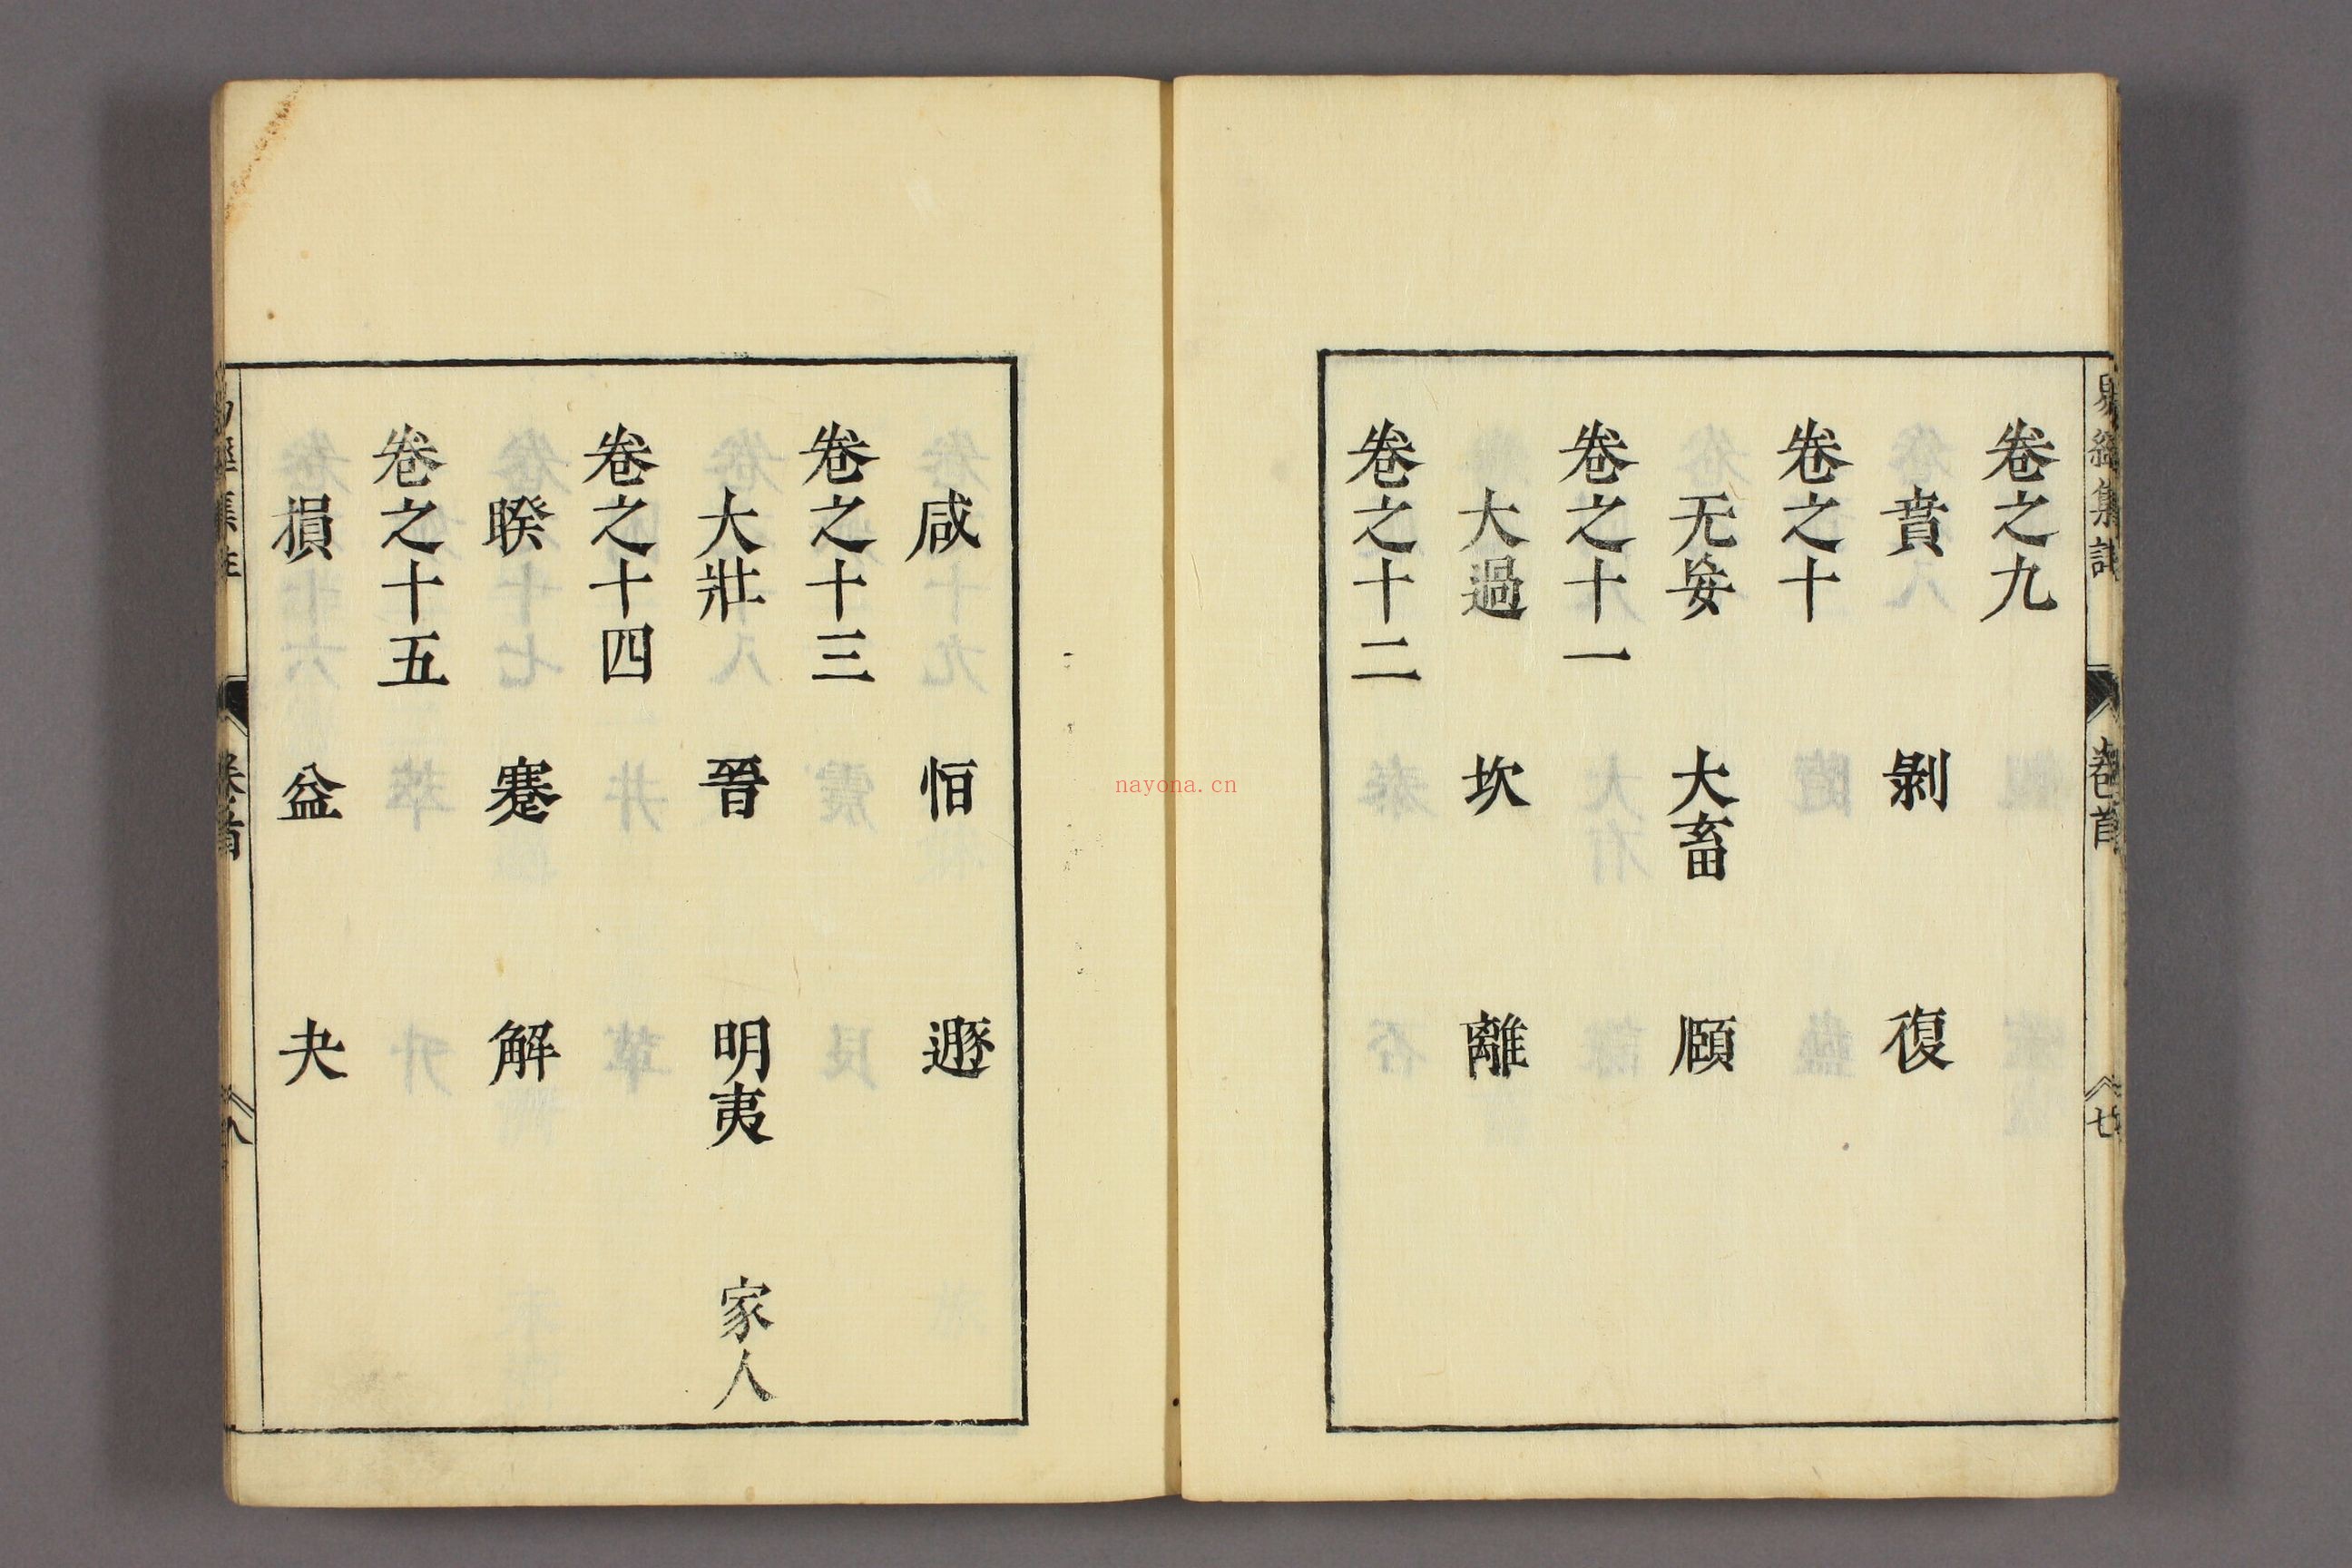 易經集註 卷首 七
卷之九
賁 剝 復
卷之十
无妄 大畜 頤
卷之十一
大過 坎 離
卷之十二
咸 恒 遯
卷之十三
大壯 晉 明夷 家人
卷之十四
睽 蹇 解
卷之十五
損 益 夬
易經集註 卷首 八
nayona.cn